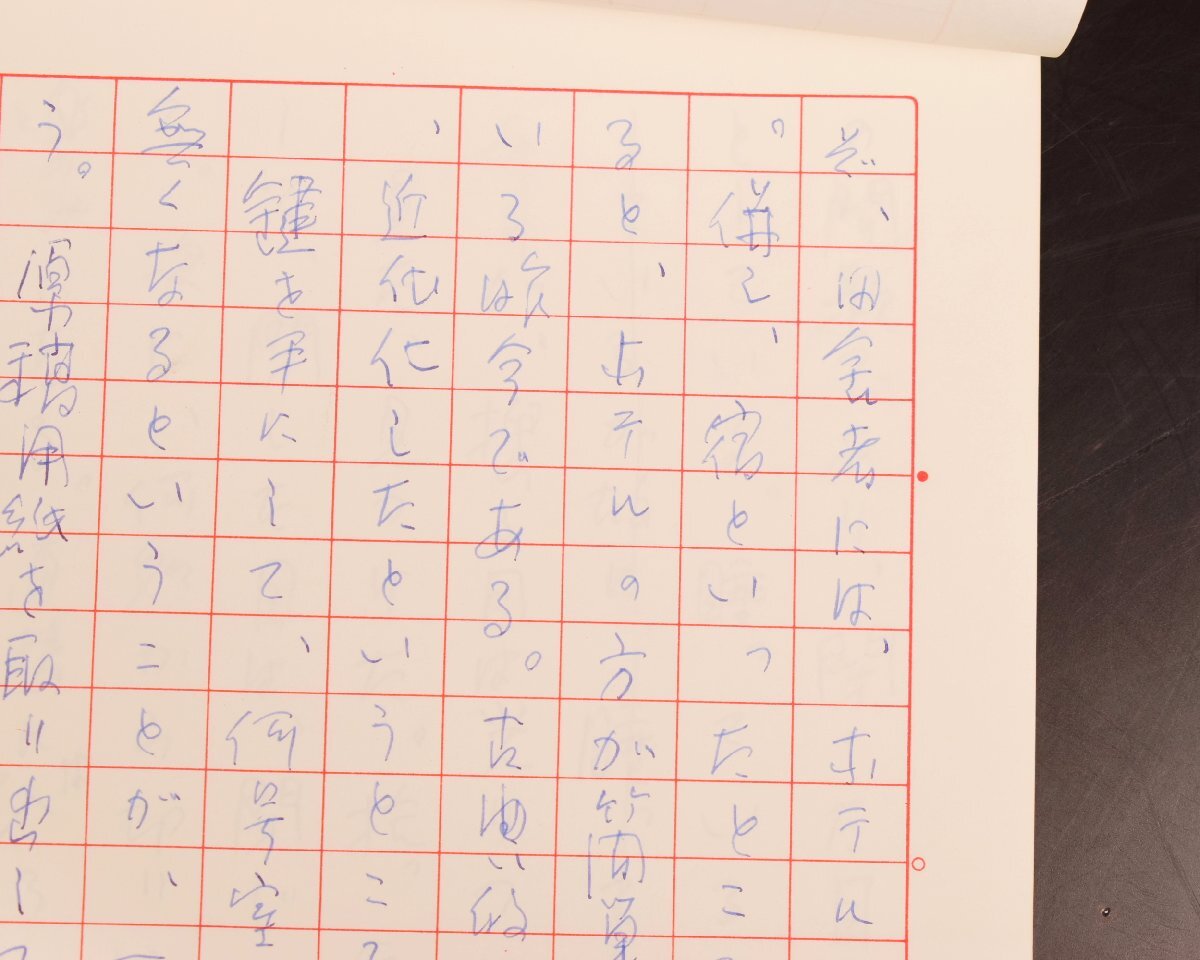 が、田舎者には、ホテル
。併し、宿といったとこ
ると、ホテルの方が簡単
いろは旅今である。古典的
、近代化したということ
鍵を手にして、何号室
無くなるということが、
う。原稿用紙を取り出し